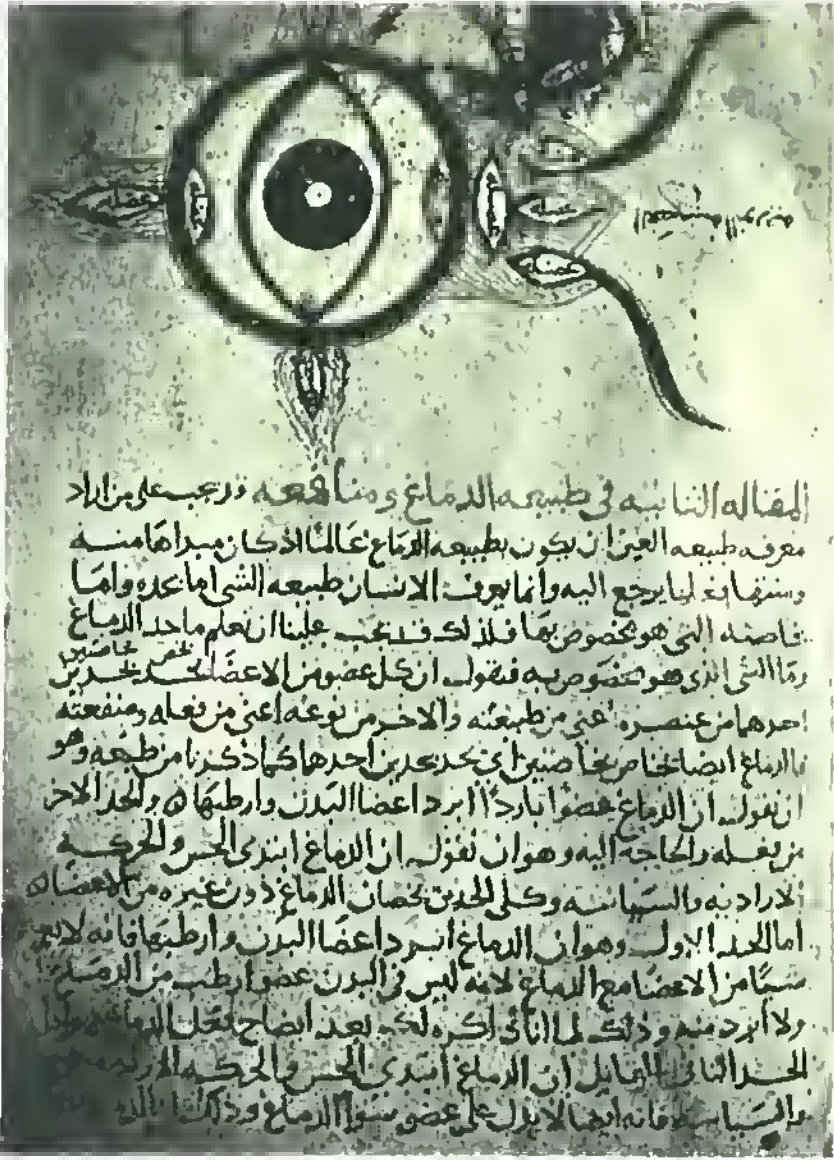 عضله
عضله
عضله
العصبه النوريه
عضله
المقاله الثانيه في طبيعه الدماغ ومنافعه ويجب على من اراد
معرفه طبيعه العين ان يكون بطبيعه الدماغ عالما اذ كان مبداها منه
ومنتهاه فعلها يرجع اليه وانما يعرف الانسان طبيعه الشي اما بحده واما
بخاصته التي هو مخصوص بها فلذلك قد يجب علينا ان نعلم ما حد الدماغ
وما الشي الذي هو مخصوص به فنقول ان كل عضو من الاعضا يحد بحدين
يخص بخاصتين
احدهما من عنصره اعني من طبيعته والاخر من نوعه اعني من فعله ومنفعته
فالدماغ ايضا يخاص بخاصتين اي يحد بحدين احدهما كما ذكرنا من طبعه وهو
ان نقول ان الدماغ عضوا باردا ابرد اعضا البدن وارطبها والحد الاخر
من فعله والحاجه اليه وهو ان نقول ان الدماغ ابتدى الحس والحركه
الاراديه والسياسه وكلي الحدين يخصان الدماغ دون غيره من الاعضا
اما الحد الاول وهو ان الدماغ ابرد اعضا البدن وارطبها فانه لا
شيا من الاعضا مع الدماغ لانه ليس في البدن عضو ارطب من الدماغ
ولا ابرد منه وذلك لما اناتي اكره لك بعد ايضاح فعل الدماغ
الحد الثاني القايل ان الدماغ ابتدى الحس والحركه الاراديه
والسياسه فانه ايضا لا يدل على عضو سوا الدماغ وذلك ان